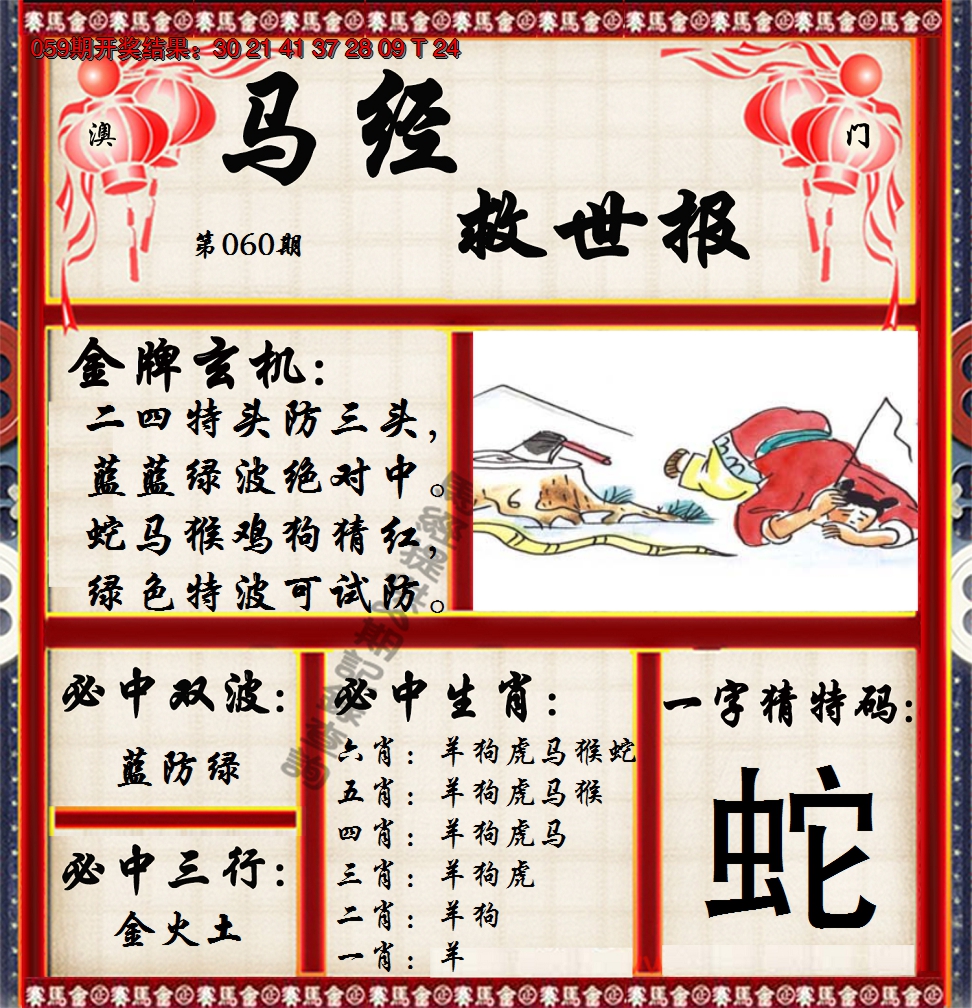 059期开奖结果：30 21 41 37 28 09 T 24
澳 门
马经
救世报
第060期
金牌玄机：
二四特头防三头，
蓝蓝绿波绝对中。
蛇马猴鸡狗猜红，
绿色特波可试防。
必中双波：
蓝防绿
必中三行：
金火土
必中生肖：
六肖：羊狗虎马猴蛇
五肖：羊狗虎马猴
四肖：羊狗虎马
三肖：羊狗虎
二肖：羊狗
一肖：羊
一字猜特码：
蛇